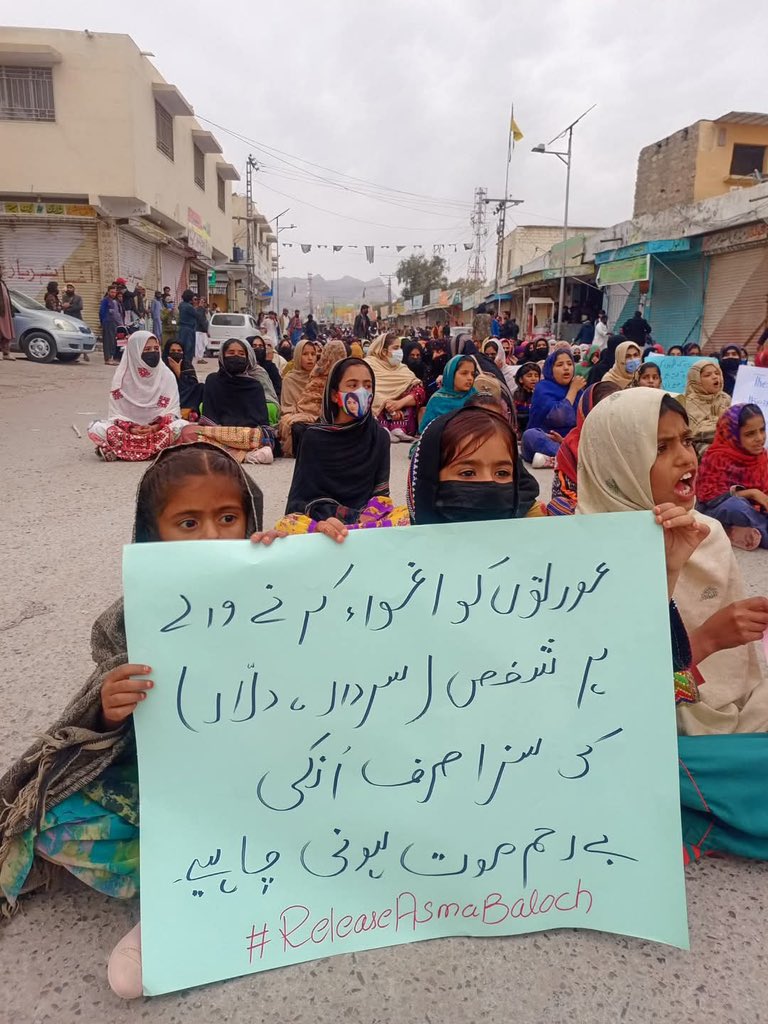 عورتوں کو اغواء کرنے والے
ہر شخص (سردار، دلّال)
کی سزا صرف اُنکی
بے رحم موت ہونی چاہیے۔
#ReleaseAsmaBaloch